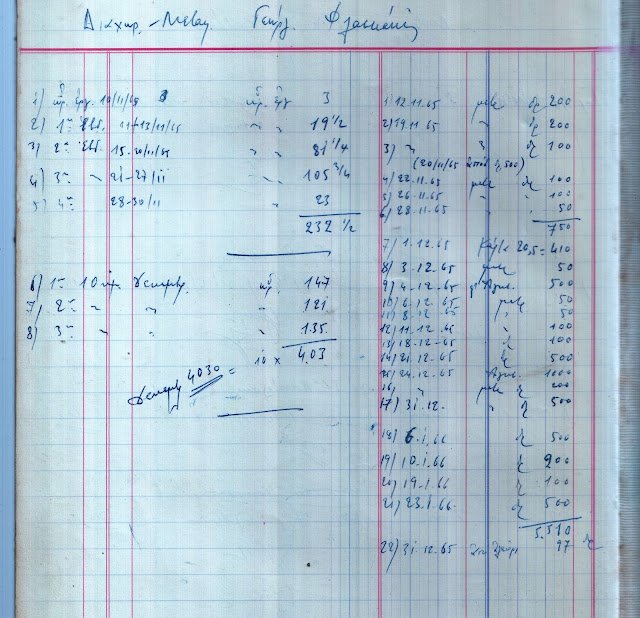 Διαχωρ. - Μεταφ. Γεώργ.
1) ὡρ. ἐργ. 10/11/65 ὡρ. ἐργ 3
2) 1η Ἑβδ. 11-13/11/65 " " 19 1/2
3) 2α Ἑβδ. 15-20/11/65 " " 81 1/4
4) 3η " 21-27/11 " " 105 3/4
5) 4η 28-30/11 " 23
232 1/2
6) 1η 10ήμ. Δεκεμβρ. ὡρ. 147
7) 2α " " " 121
8) 3η " " " 135
10 x 403
Δεκεμβ 4030 =
1) 12.11.65 μετρ δρ 200
2) 19.11.65 " δρ 200
3) " " δρ 100
(20/11/65 500)
4) 22.11.65 μετρ δρ 100
5) 26-11-65 " " 100
6) 28.11-65 " 50
750
7) 1.12.65 20,5 = 410
8) 3-12-65 μετρ 50
9) 4-12.65 500
10) 6-12-65 μετρ 50
11) 8-12-65 " 50
12) 11.12.65 " 100
13) 18-12-65 δρ 100
14) 21.12.65 δρ 500
15) 24.12.65 1000
16) " μετρ δρ 200
17) 31.12. " δρ 500
18) 6.1.66 δρ 500
19) 10.1.66 δρ 200
20) 19.1.66 δρ 100
21) 23.1.66. δρ 500
5.510
22) 31.12.65 97 δρ